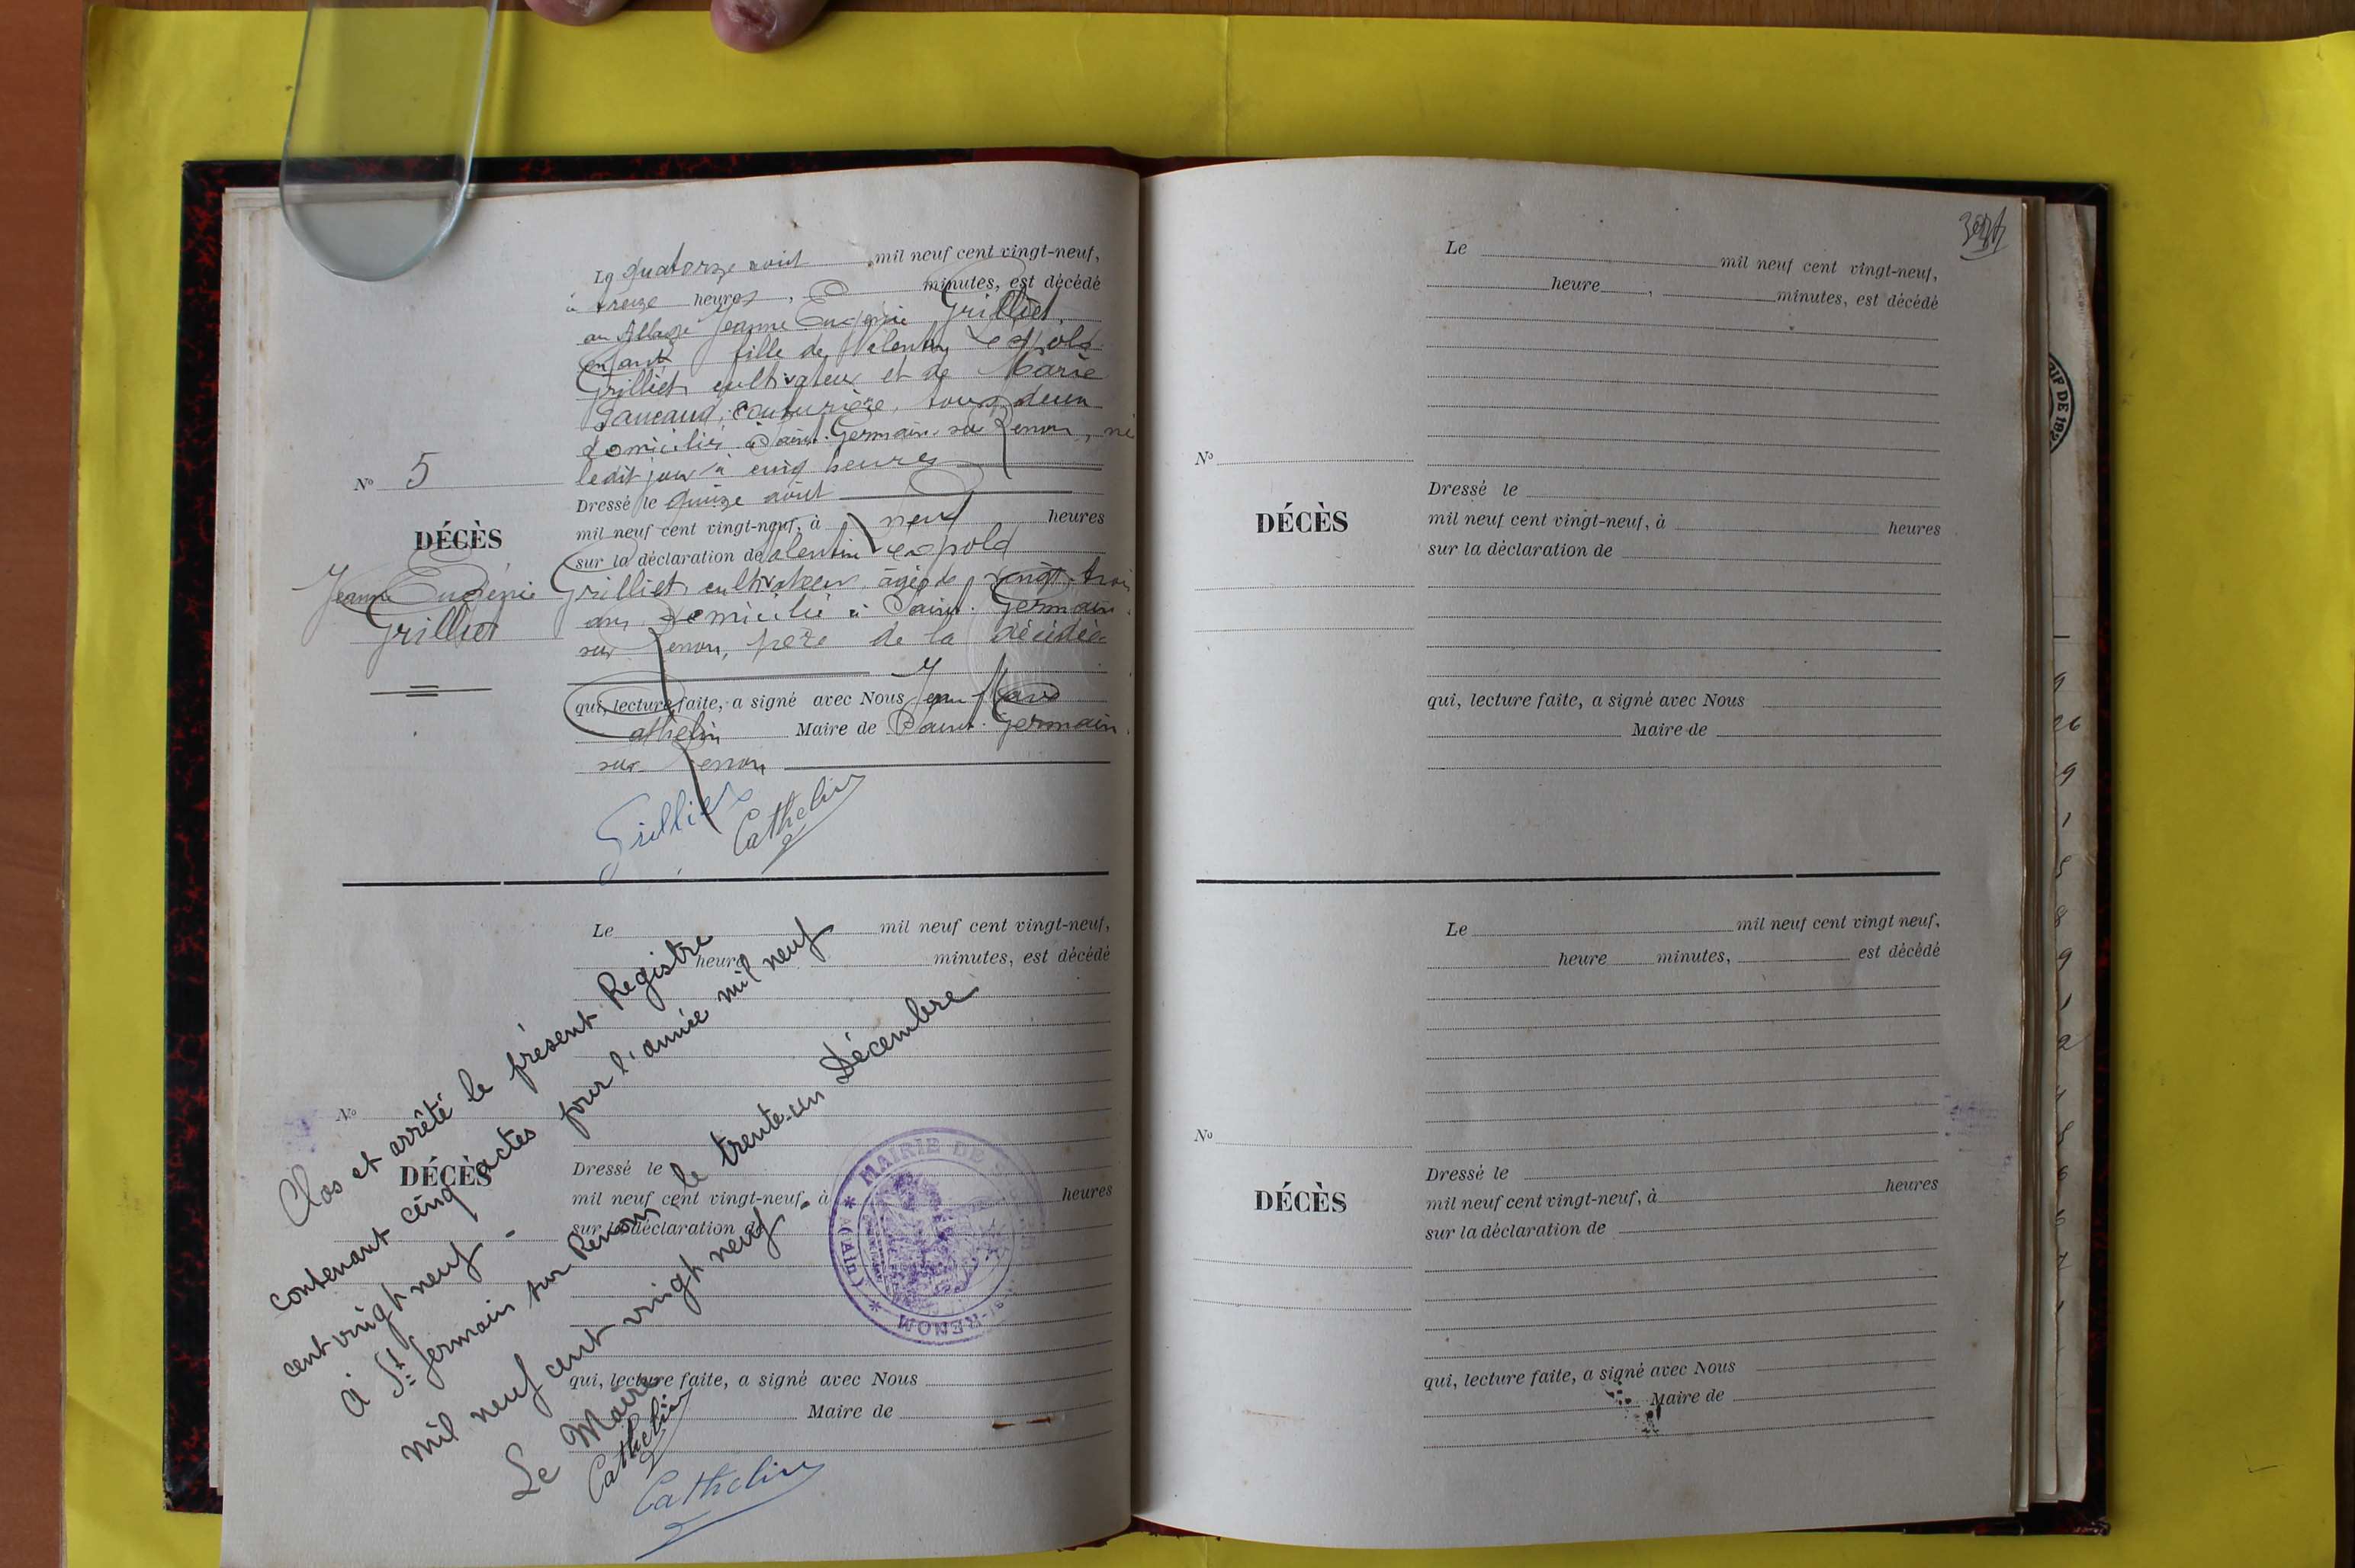 Le quatorze août mil neuf cent vingt-neuf,
à treize heures, minutes, est décédé
au village Jeanne Eugénie Grilliet,
enfant fille de Valentin Léopold
Grilliet, cultivateur et de Marie
couturière, tous deux
domiciliés à Saint-Germain-sur Renon, né
ledit jour à cinq heures
Nº 5
DÉCÈS
Jeanne Eugénie
Grilliet
Dressé le quinze août
mil neuf cent vingt-neuf, à neuf heures
sur la déclaration de Valentin Léopold
Grilliet cultivateur âgé de vingt-trois
ans domicilié à Saint-Germain-
sur Renon, père de la décédée
qui, lecture faite, a signé avec Nous Jean Marie
Cathelin Maire de Saint-Germain-
sur Renon
Grilliet
Cathelin
Le mil neuf cent vingt-neuf,
heure minutes, est décédé
Nº
DÉCÈS
Dressé le
mil neuf cent vingt-neuf, à heures
sur la déclaration de
qui, lecture faite, a signé avec Nous
Maire de
Clos et arrêté le présent Registre
contenant cinq actes pour l'année mil neuf
cent vingt neuf -
à St Germain sur Renon, le trente-un Décembre
mil neuf cent vingt neuf -
Le Maire
Cathelin
Cathelin
* MAIRIE DE S
-RENOM
* (Ain) *
Le mil neuf cent vingt-neuf,
heure , minutes, est décédé
Nº
DÉCÈS
Dressé le
mil neuf cent vingt-neuf, à heures
sur la déclaration de
qui, lecture faite, a signé avec Nous
Maire de
Le mil neuf cent vingt neuf,
heure minutes, est décédé
Nº
DÉCÈS
Dressé le
mil neuf cent vingt-neuf, à heures
sur la déclaration de
qui, lecture faite, a signé avec Nous
Maire de